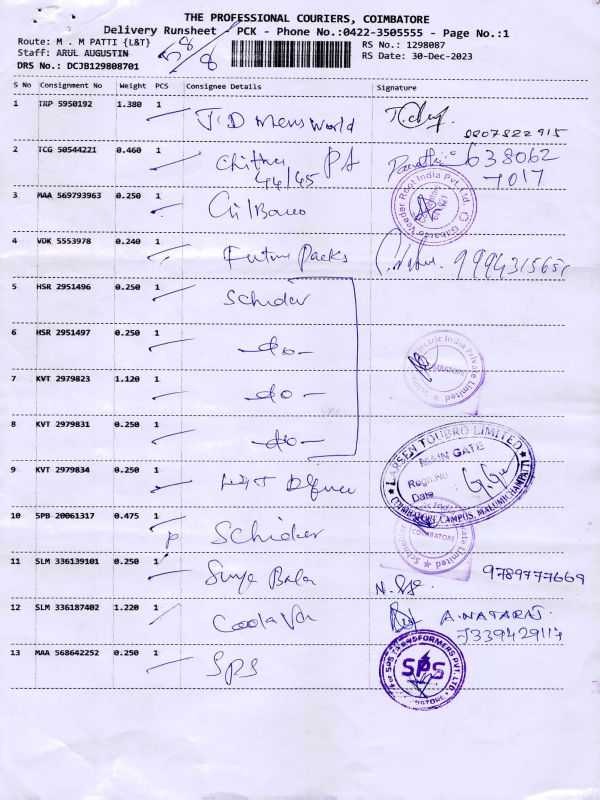 THE PROFESSIONAL COURIERS, COIMBATORE
Delivery Runsheet - PCK - Phone No.:0422-3505555 - Page No.:1
Route: M . M PATTI {L&T}
Staff: ARUL AUGUSTIN
DRS No.: DCJB129808701
58/8
RS No.: 1298087
RS Date: 30-Dec-2023
S No Consignment No Weight PCS Consignee Details Signature
1 TRP 5950192 1.380 1 J.D Mens World
2 TCG 50544221 0.460 1 PA 638062
44/45 7017
3 MAA 569793963 0.250 1
Gilbarco Veeder Root India Pvt. Ltd.
4 VDK 5553978 0.240 1 Future Packs
5 HSR 2951496 0.250 1 Schider
6 HSR 2951497 0.250 1 -do-
Electric India Private Limited
7 KVT 2979823 1.120 1 -do-
8 KVT 2979831 0.250 1 -do-
LARSEN TOUBRO LIMITED
MAIN GATE
Regn.No
Date :
COIMBATORE CAMPUS, MALUMICHAMPATTI
9 KVT 2979834 0.250 1 L&T Defence
10 SPB 20061317 0.475 1 P Schider
COIMBATORE
11 SLM 336139101 0.250 1 Surya Bala 9789777669
12 SLM 336187402 1.220 1 A.NATARAJ
7339429114
13 MAA 568642252 0.250 1 SPS
For SPS TRANSFORMERS PVT. LTD.
SPS